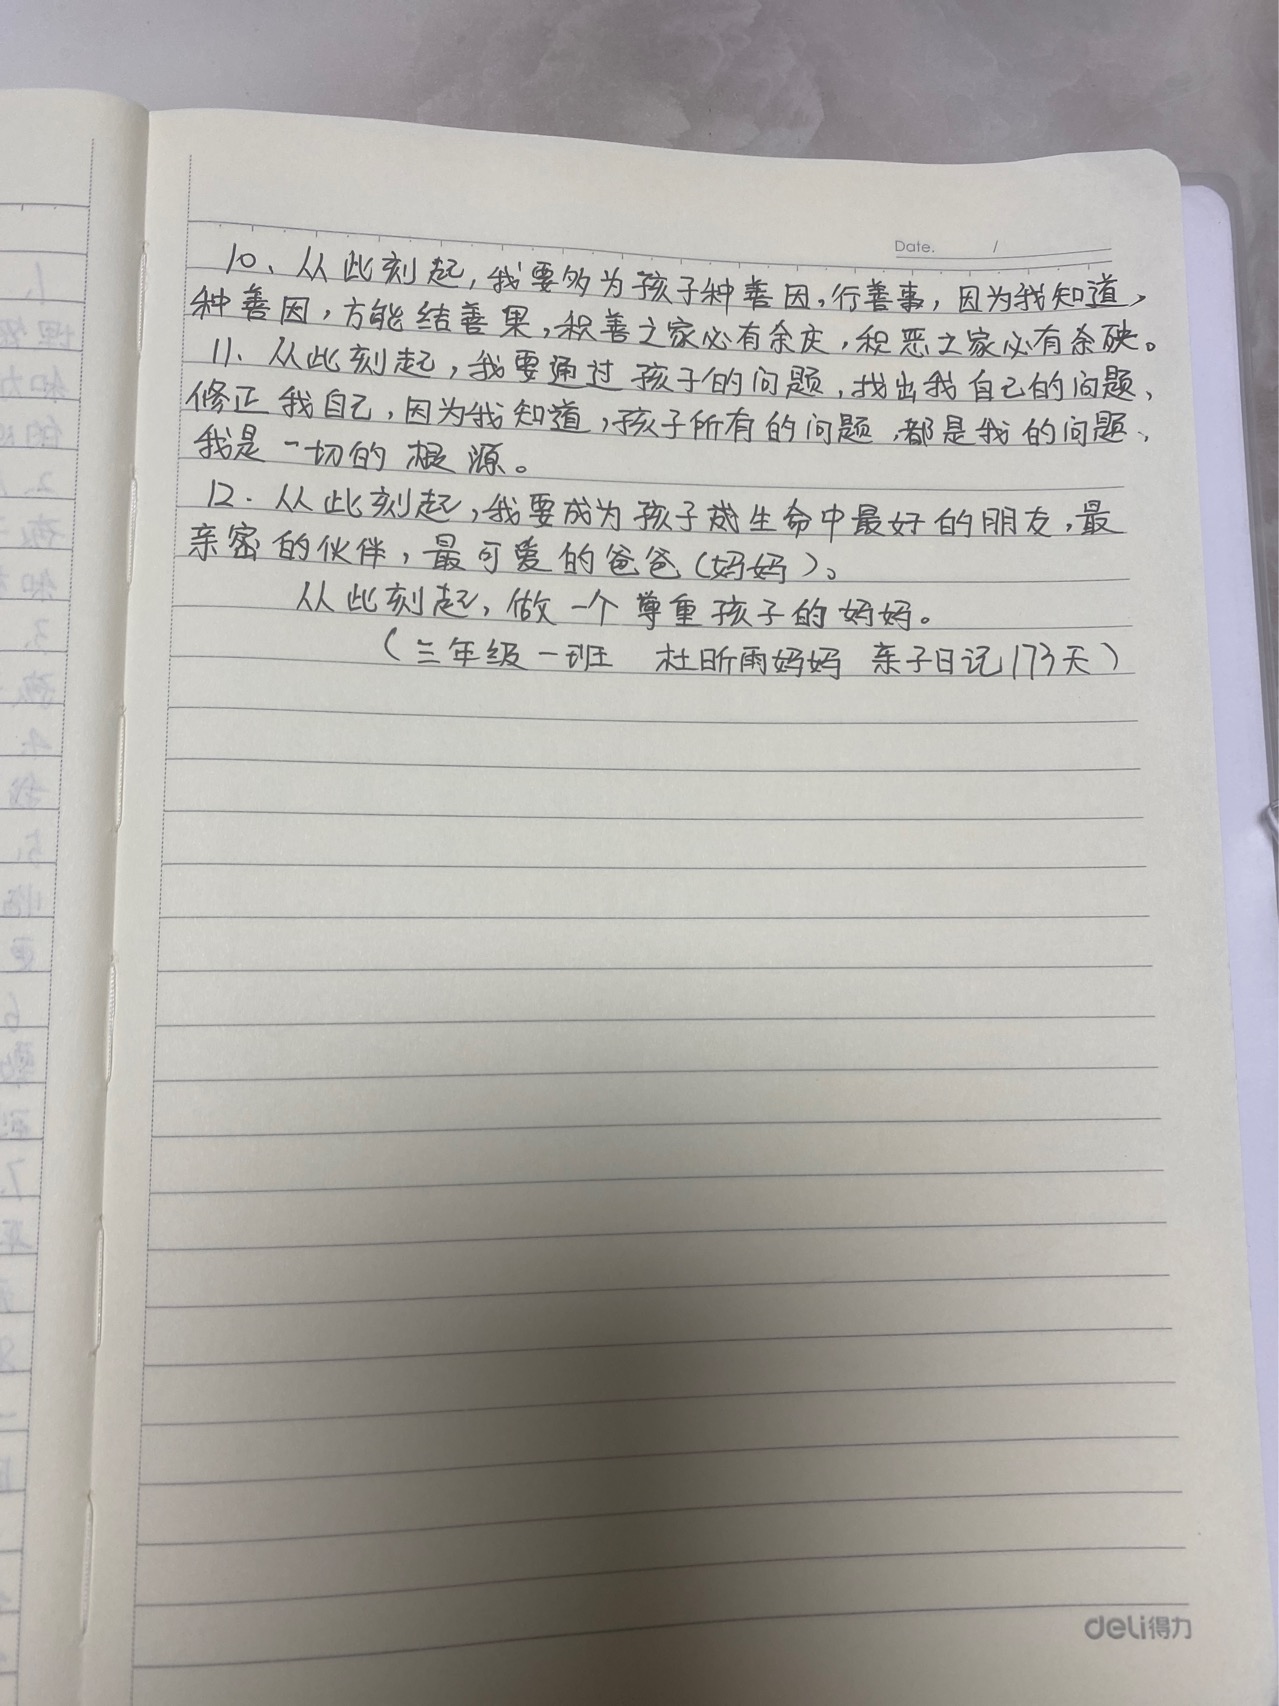 Date. /
10、从此刻起，我要多为孩子种善因，行善事，因为我知道，
种善因，方能结善果，积善之家必有余庆，积恶之家必有余殃。
11、从此刻起，我要通过孩子的问题，找出我自己的问题，
修正我自己，因为我知道，孩子所有的问题，都是我的问题、
我是一切的根源。
12、从此刻起，我要成为孩子成生命中最好的朋友，最
亲密的伙伴，最可爱的爸爸（妈妈）。
从此刻起，做一个尊重孩子的妈妈。
（三年级一班 杜昕雨妈妈 亲子日记173天）
deli得力